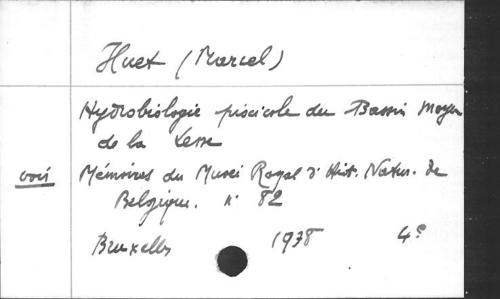 Huet (Marcel)
Hydrobiologie piscicole du Bassin moyen
de la Lesse
voir Mémoires du Musée Royal d'Hist. Natur. de
Belgique. n° 82
Bruxelles 1938 4°